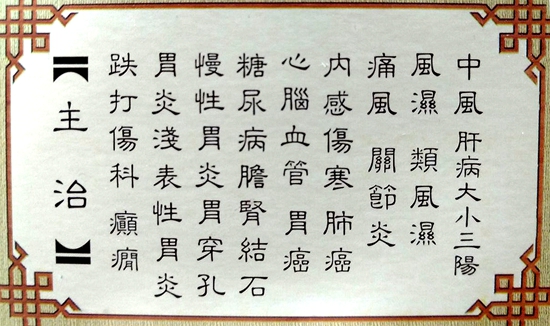 中風 肝病大小三陽
風濕 類風濕
痛風 關節炎
內感傷寒 肺癌
心腦血管 胃癌
糖尿病膽腎結石
慢性胃炎胃穿孔
胃炎淺表性胃炎
跌打傷科 癲癇
【主治】